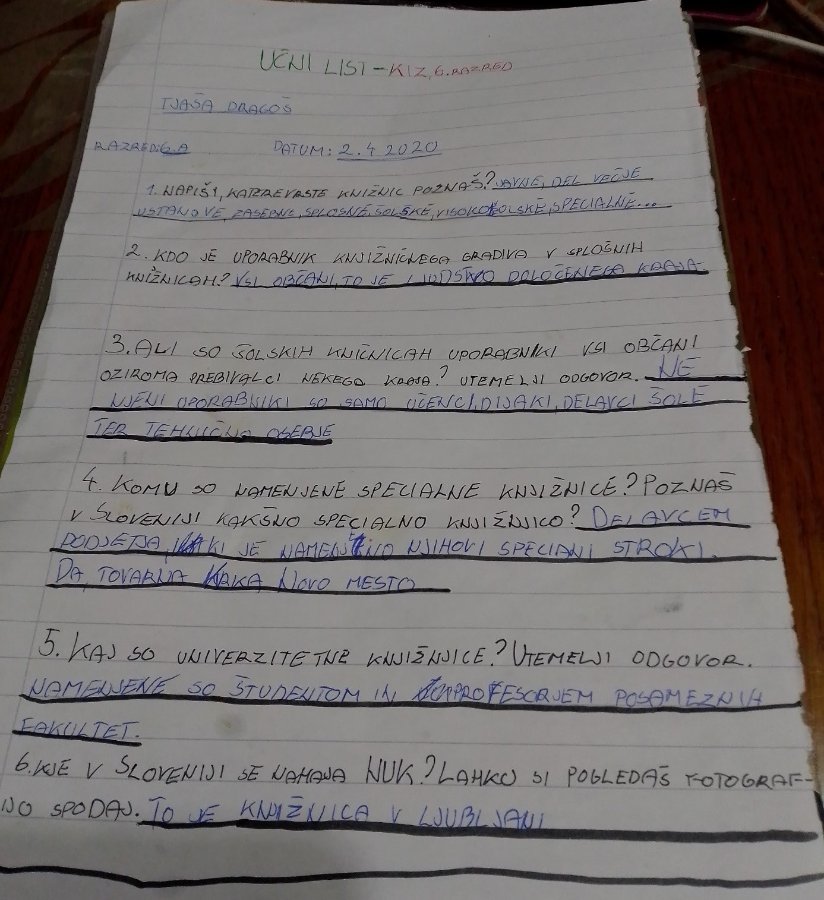 UČNI LIST - KIZ, 6. RAZRED
TJAŠA DRAGOŠ
RAZRED: 6.A DATUM: 2.4 2020
1. NAPIŠI, KATERE VRSTE KNIŽNIC POZNAŠ? JAVNE, DEL VEČJE
USTANOVE, ZASEBNE, SPLOŠNE, ŠOLSKE, VISOKOŠOLSKE, SPECIALNE...
2. KDO JE UPORABNIK KNJIŽNIČNEGA GRADIVA V SPLOŠNIH
KNIŽNICAH? VSI OBČANI, TO JE LJUDSTVO DOLOČENEGA KRAJA.
3. ALI SO ŠOLSKIH KNIČNICAH UPORABNIKI VSI OBČANI
OZIROMA PREBIVALCI NEKEGA KRAJA? UTEMELJI ODGOVOR. NE
NJENI UPORABNIKI SO SAMO UČENCI, DIJAKI, DELAVCI ŠOLE
TER TEHNIČNO OSEBJE
4. KOMU SO NAMENJENE SPECIALNE KNJIŽNICE? POZNAŠ
V SLOVENIJI KAKŠNO SPECIALNO KNJIŽNJICO? DELAVCEM
PODJETJA, KI JE NAMENJENO NJIHOVI SPECIANI STROKI.
DA, TOVARNA KRKA NOVO MESTO
5. KAJ SO UNIVERZITETNE KNJIŽNJICE? UTEMELJI ODGOVOR.
NAMENJENE SO ŠTUDENTOM IN PROFESORJEM POSAMEZNIH
FAKULTET.
6. KJE V SLOVENIJI SE NAHAJA NUK? LAHKO SI POGLEDAŠ FOTOGRAF-
IJO SPODAJ. TO JE KNJIŽNICA V LJUBLJANI